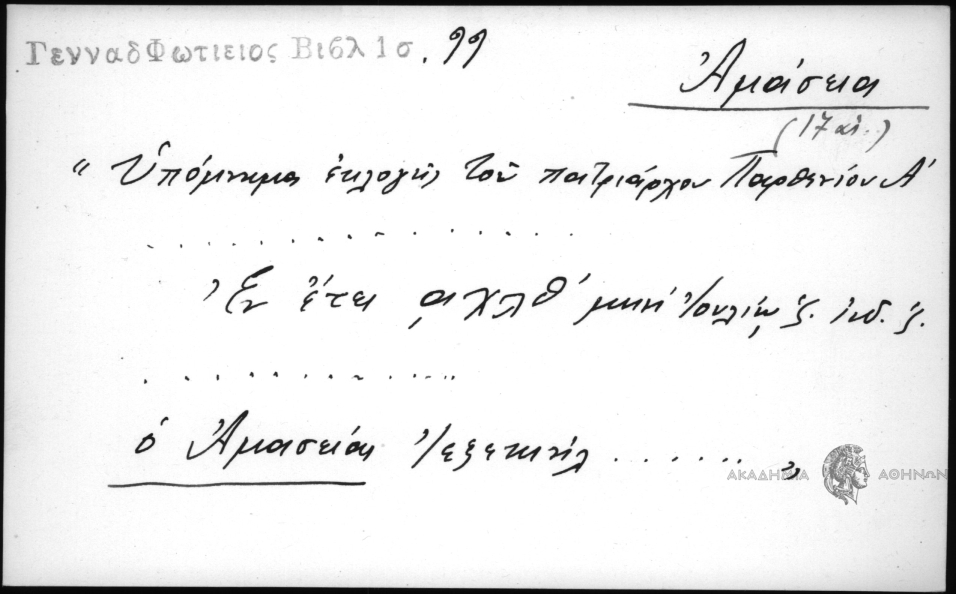 ΓενναδΦωτιειος Βιβλ 1σ. 99
Ἀμάσεια
(17 αἰ.)
“ Ὑπόμνημα ἐκλογῆς τοῦ πατριάρχου Παρθενίου Α'
. . . . . . . . . . . . . . . . .
Ἐν ἔτει ͵αχλθ' μηνὶ Ἰουλίῳ ζ. ἰνδ. ζ.
. . . . . . . . . . . . .
ὁ Ἀμασείας Ἰεζεκιήλ . . . . . . . „
ΑΚΑΔΗΜΙΑ ΑΘΗΝΩΝ